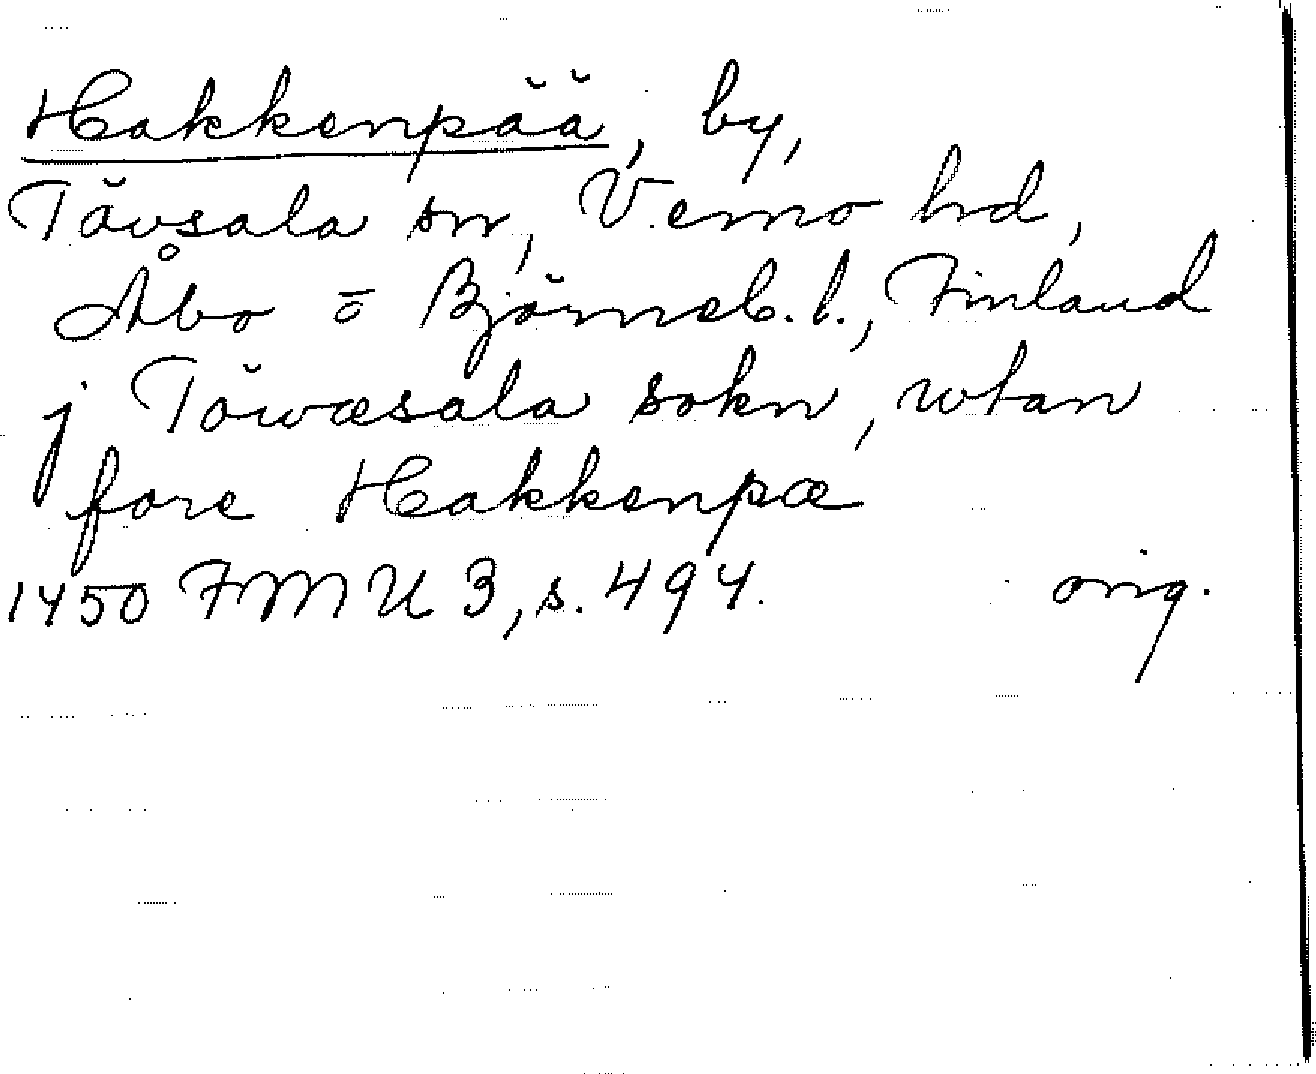 Hakkenpää, by,
Tövsala sn, Vemo hd,
Åbo o Björneb. l., Finland
j Töwæsala sokn, wtan
fore Hakkenpæ
1450 FMU 3, s. 494. orig.